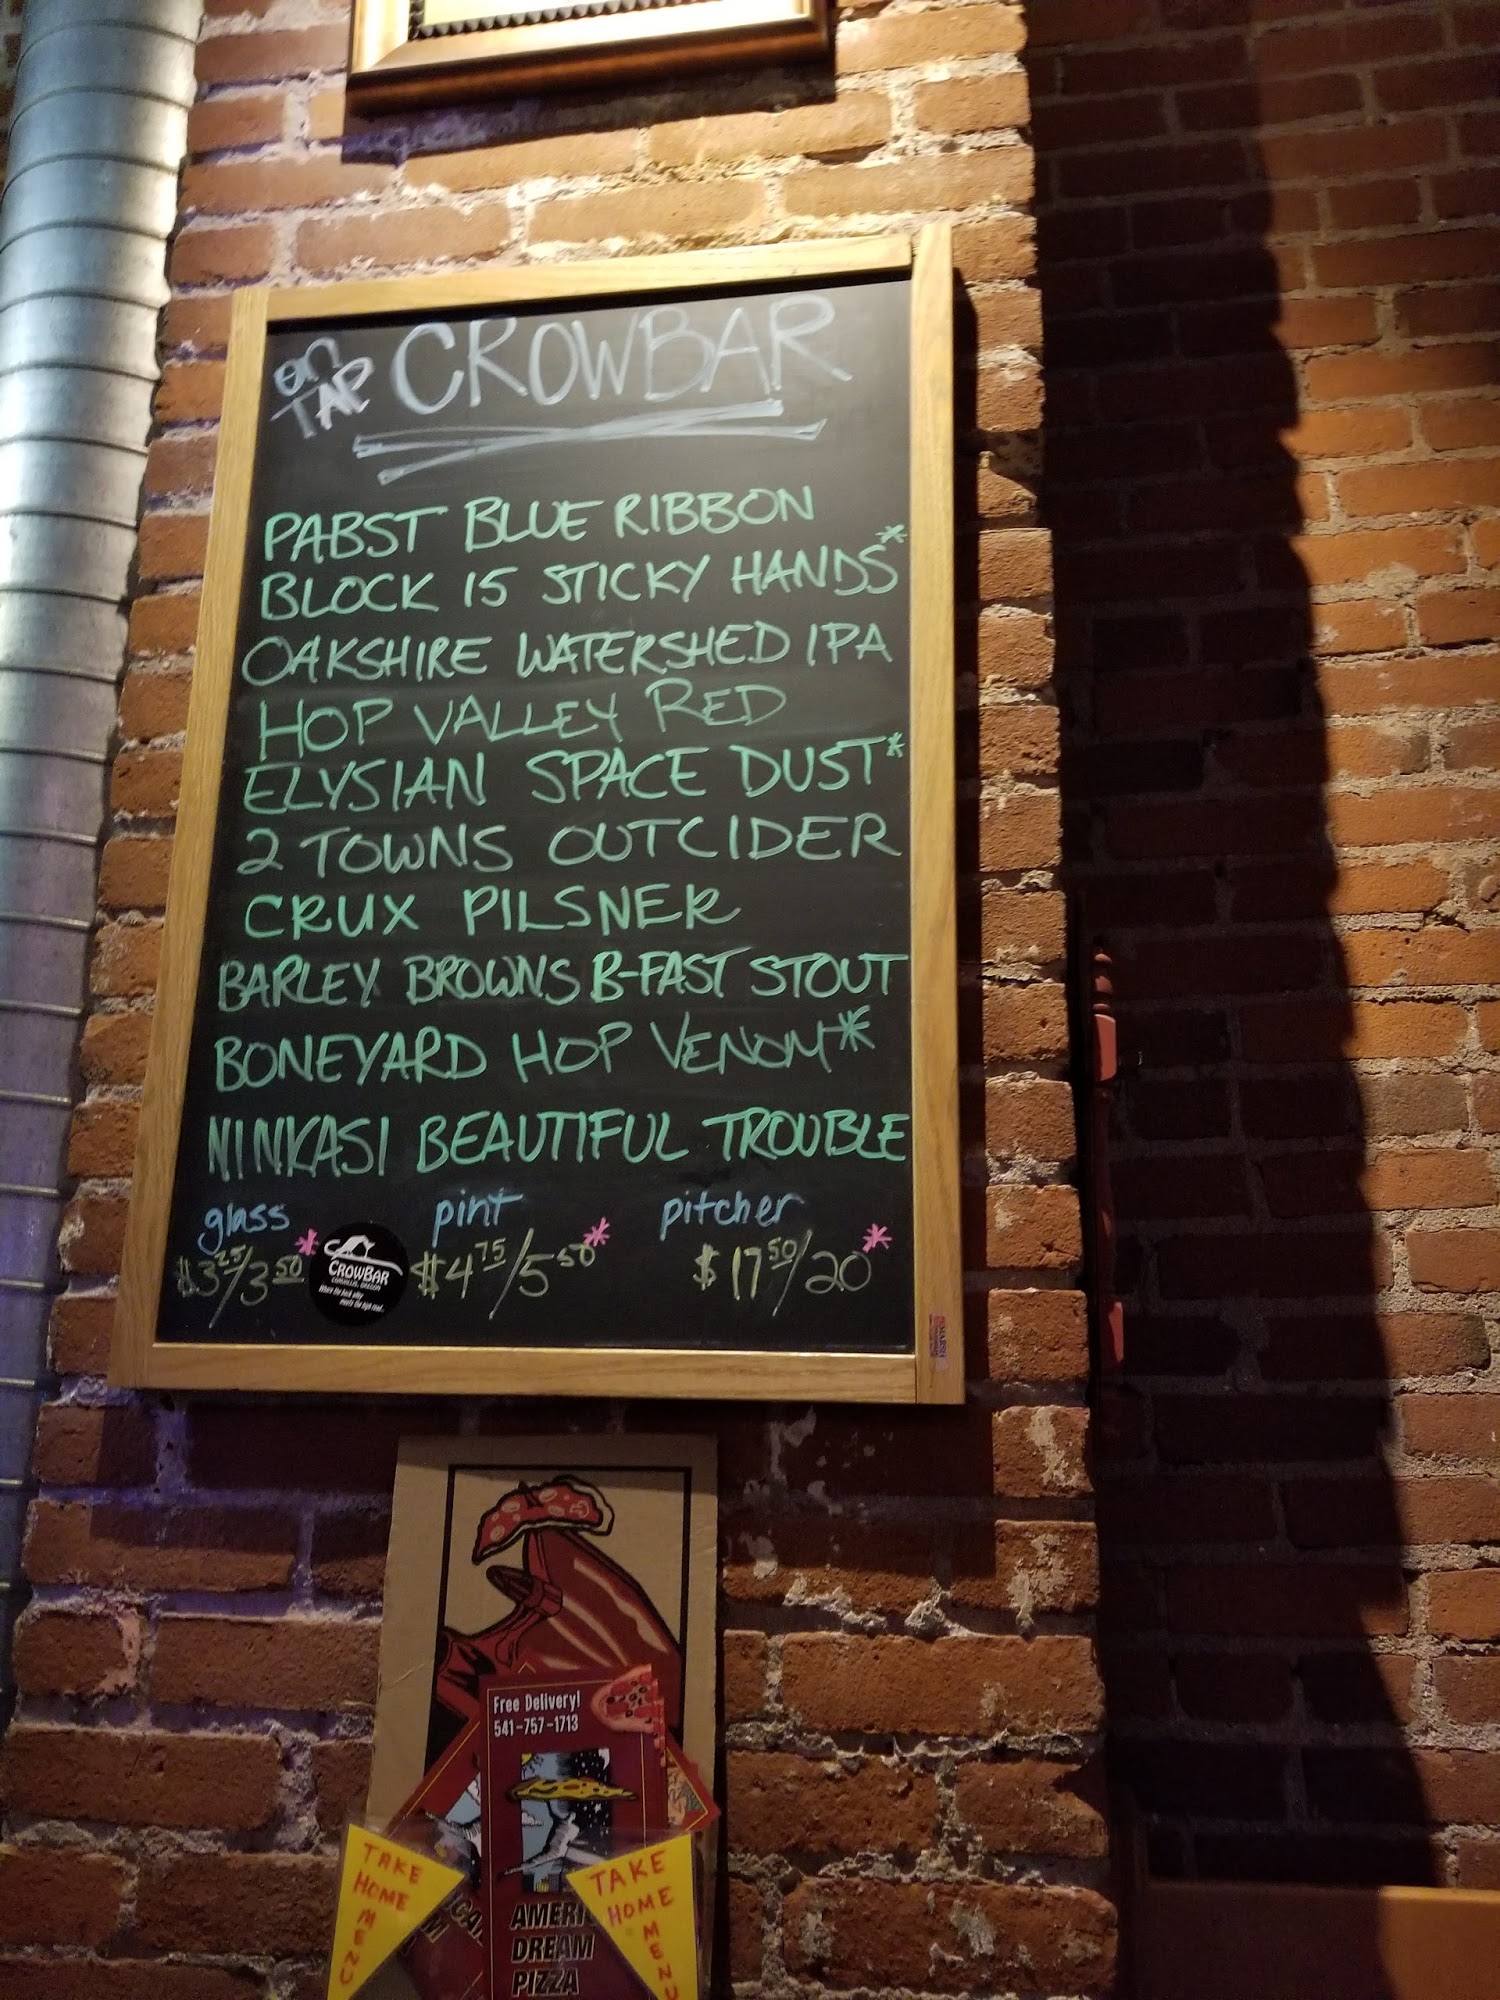 on TAP CROWBAR
PABST BLUE RIBBON
BLOCK 15 STICKY HANDS*
OAKSHIRE WATERSHED IPA
HOP VALLEY RED
ELYSIAN SPACE DUST*
2 TOWNS OUTCIDER
CRUX PILSNER
BARLEY BROWNS B-FAST STOUT
BONEYARD HOP VENOM*
NINKASI BEAUTIFUL TROUBLE
glass pint pitcher
$3 25/3 50* $4 75/5 50* $17 50/20*
CROWBAR
CORVALLIS, OREGON
Free Delivery!
541-757-1713
TAKE HOME MENU
TAKE HOME MENU
AMERI
DREAM
PIZZA